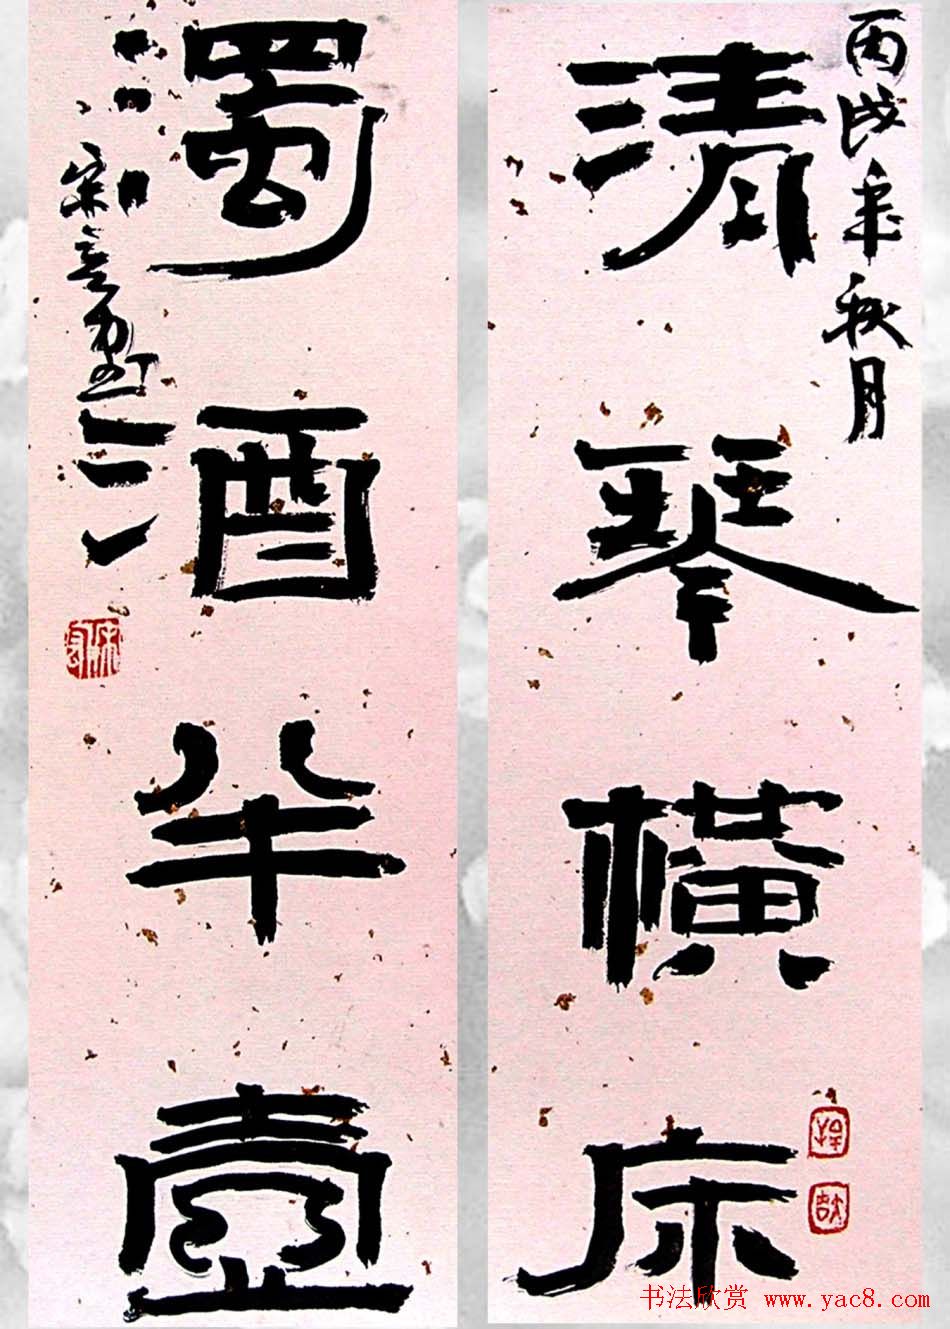 丙戌年秋月
清琴横床
濁酒半壺
书法欣赏 www.yac8.com